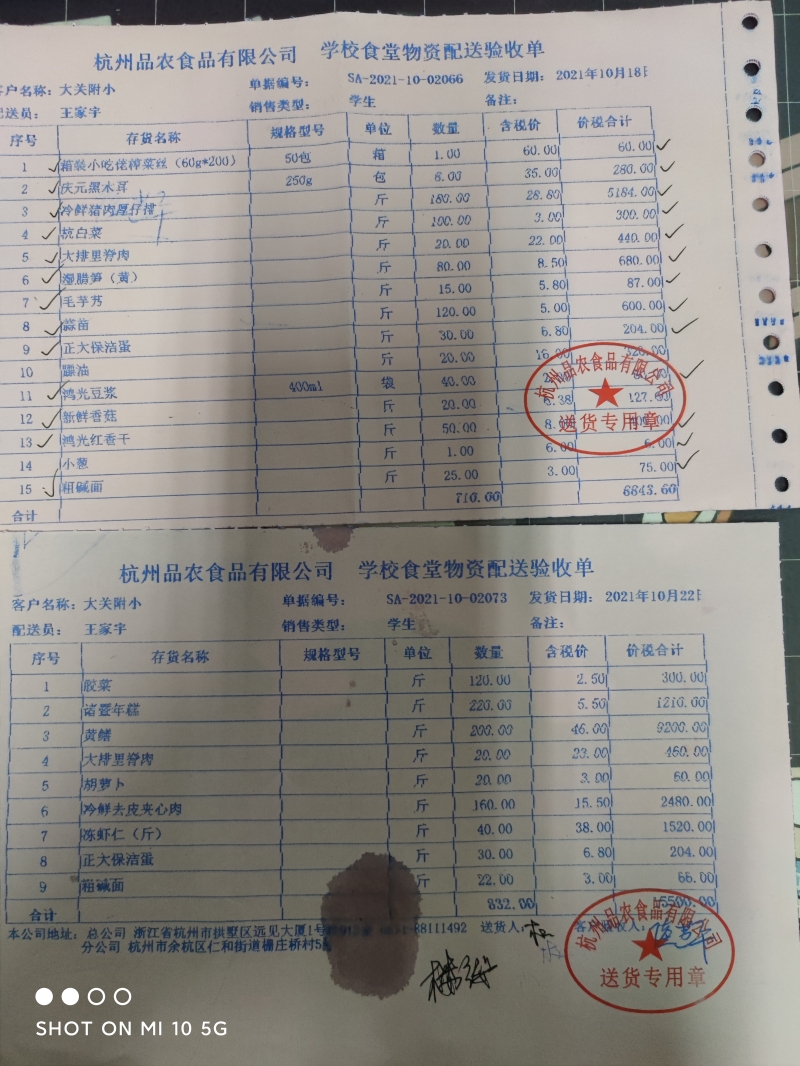 杭州品农食品有限公司 学校食堂物资配送验收单
客户名称: 大关附小 单据编号: SA-2021-10-02066 发货日期: 2021年10月18日
配送员: 王家宇 销售类型: 学生 备注:
序号 存货名称 规格型号 单位 数量 含税价 价税合计
1 箱装小吃佬榨菜丝（60g*200） 50包 箱 1.00 60.00 60.00
2 庆元黑木耳 250g 包 8.00 35.00 280.00
3 冷鲜猪肉厚仔排 斤 180.00 28.80 5184.00
4 杭白菜 斤 100.00 3.00 300.00
5 大排里脊肉 斤 20.00 22.00 440.00
6 腊笋（黄） 斤 80.00 8.50 680.00
7 毛芋艿 斤 15.00 5.80 87.00
8 蒜苗 斤 120.00 5.00 600.00
9 正大保洁蛋 斤 30.00 6.80 204.00
10 油 斤 20.00 16.00 320.00
11 鸿光豆浆 400ml 袋 40.00
12 新鲜香菇 斤 20.00 6.38 127.60
13 鸿光红香干 斤 50.00 8.00 400.00
14 小葱 斤 1.00 6.00 6.00
15 粗碱面 斤 25.00 3.00 75.00
合计 710.00 8843.60
杭州品农食品有限公司
送货专用章
杭州品农食品有限公司 学校食堂物资配送验收单
客户名称: 大关附小 单据编号: SA-2021-10-02073 发货日期: 2021年10月22日
配送员: 王家宇 销售类型: 学生 备注:
序号 存货名称 规格型号 单位 数量 含税价 价税合计
1 胶菜 斤 120.00 2.50 300.00
2 诸暨年糕 斤 220.00 5.50 1210.00
3 黄鳝 斤 200.00 46.00 9200.00
4 大排里脊肉 斤 20.00 23.00 460.00
5 胡萝卜 斤 20.00 3.00 60.00
6 冷鲜去皮夹心肉 斤 160.00 15.50 2480.00
7 冻虾仁（斤） 斤 40.00 38.00 1520.00
8 正大保洁蛋 斤 30.00 6.80 204.00
9 粗碱面 斤 22.00 3.00 66.00
合计 832.00 15500.00
本公司地址: 总公司 浙江省杭州市拱墅区远见大厦1号 88111492 送货人: 客户验收人:
分公司 杭州市余杭区仁和街道棚庄桥村5
杭州品农食品有限公司
送货专用章
SHOT ON MI 10 5G